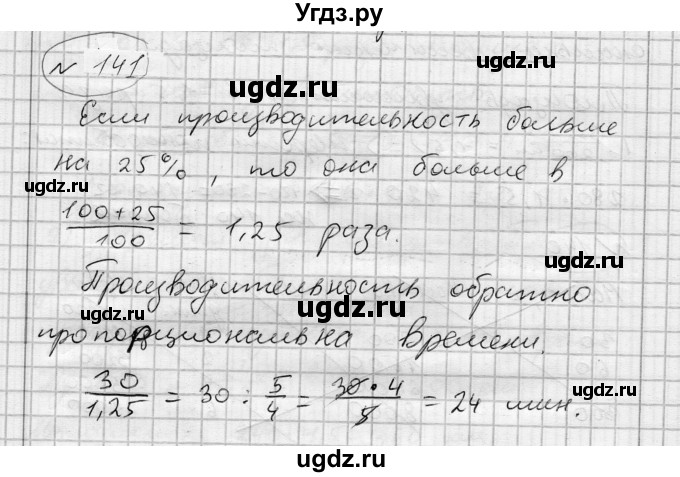 Угдз.ру
№ 141
ugdz.ru ugdz.ru
Если производительность больше
на 25%, то она больше в
ugdz.ru ugdz.ru
(100+25)/100 = 1,25 раза.
ugdz.ru
Производительность обратно
ugdz.ru ugdz.ru
пропорциональна времени.
30/1,25 = 30 : 5/4 = (30·4)/5 = 24 мин.
ugdz.ru ugdz.ru
ugdz.ru